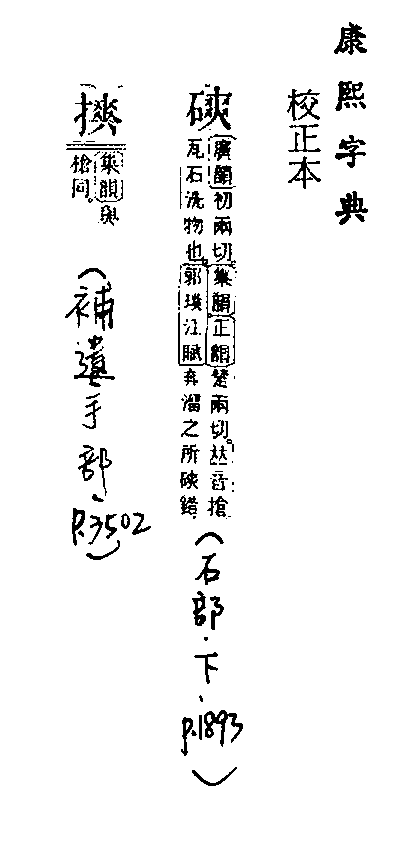 康熙字典
校正本
磢
廣韻初兩切集韻正韻楚兩切。𠀤音搶
瓦石洗物也。郭璞江賦奔溜之所磢錯
(石部·下·p.1893)
摤
集韻與
搶同。
(補遺手部·p.3502)